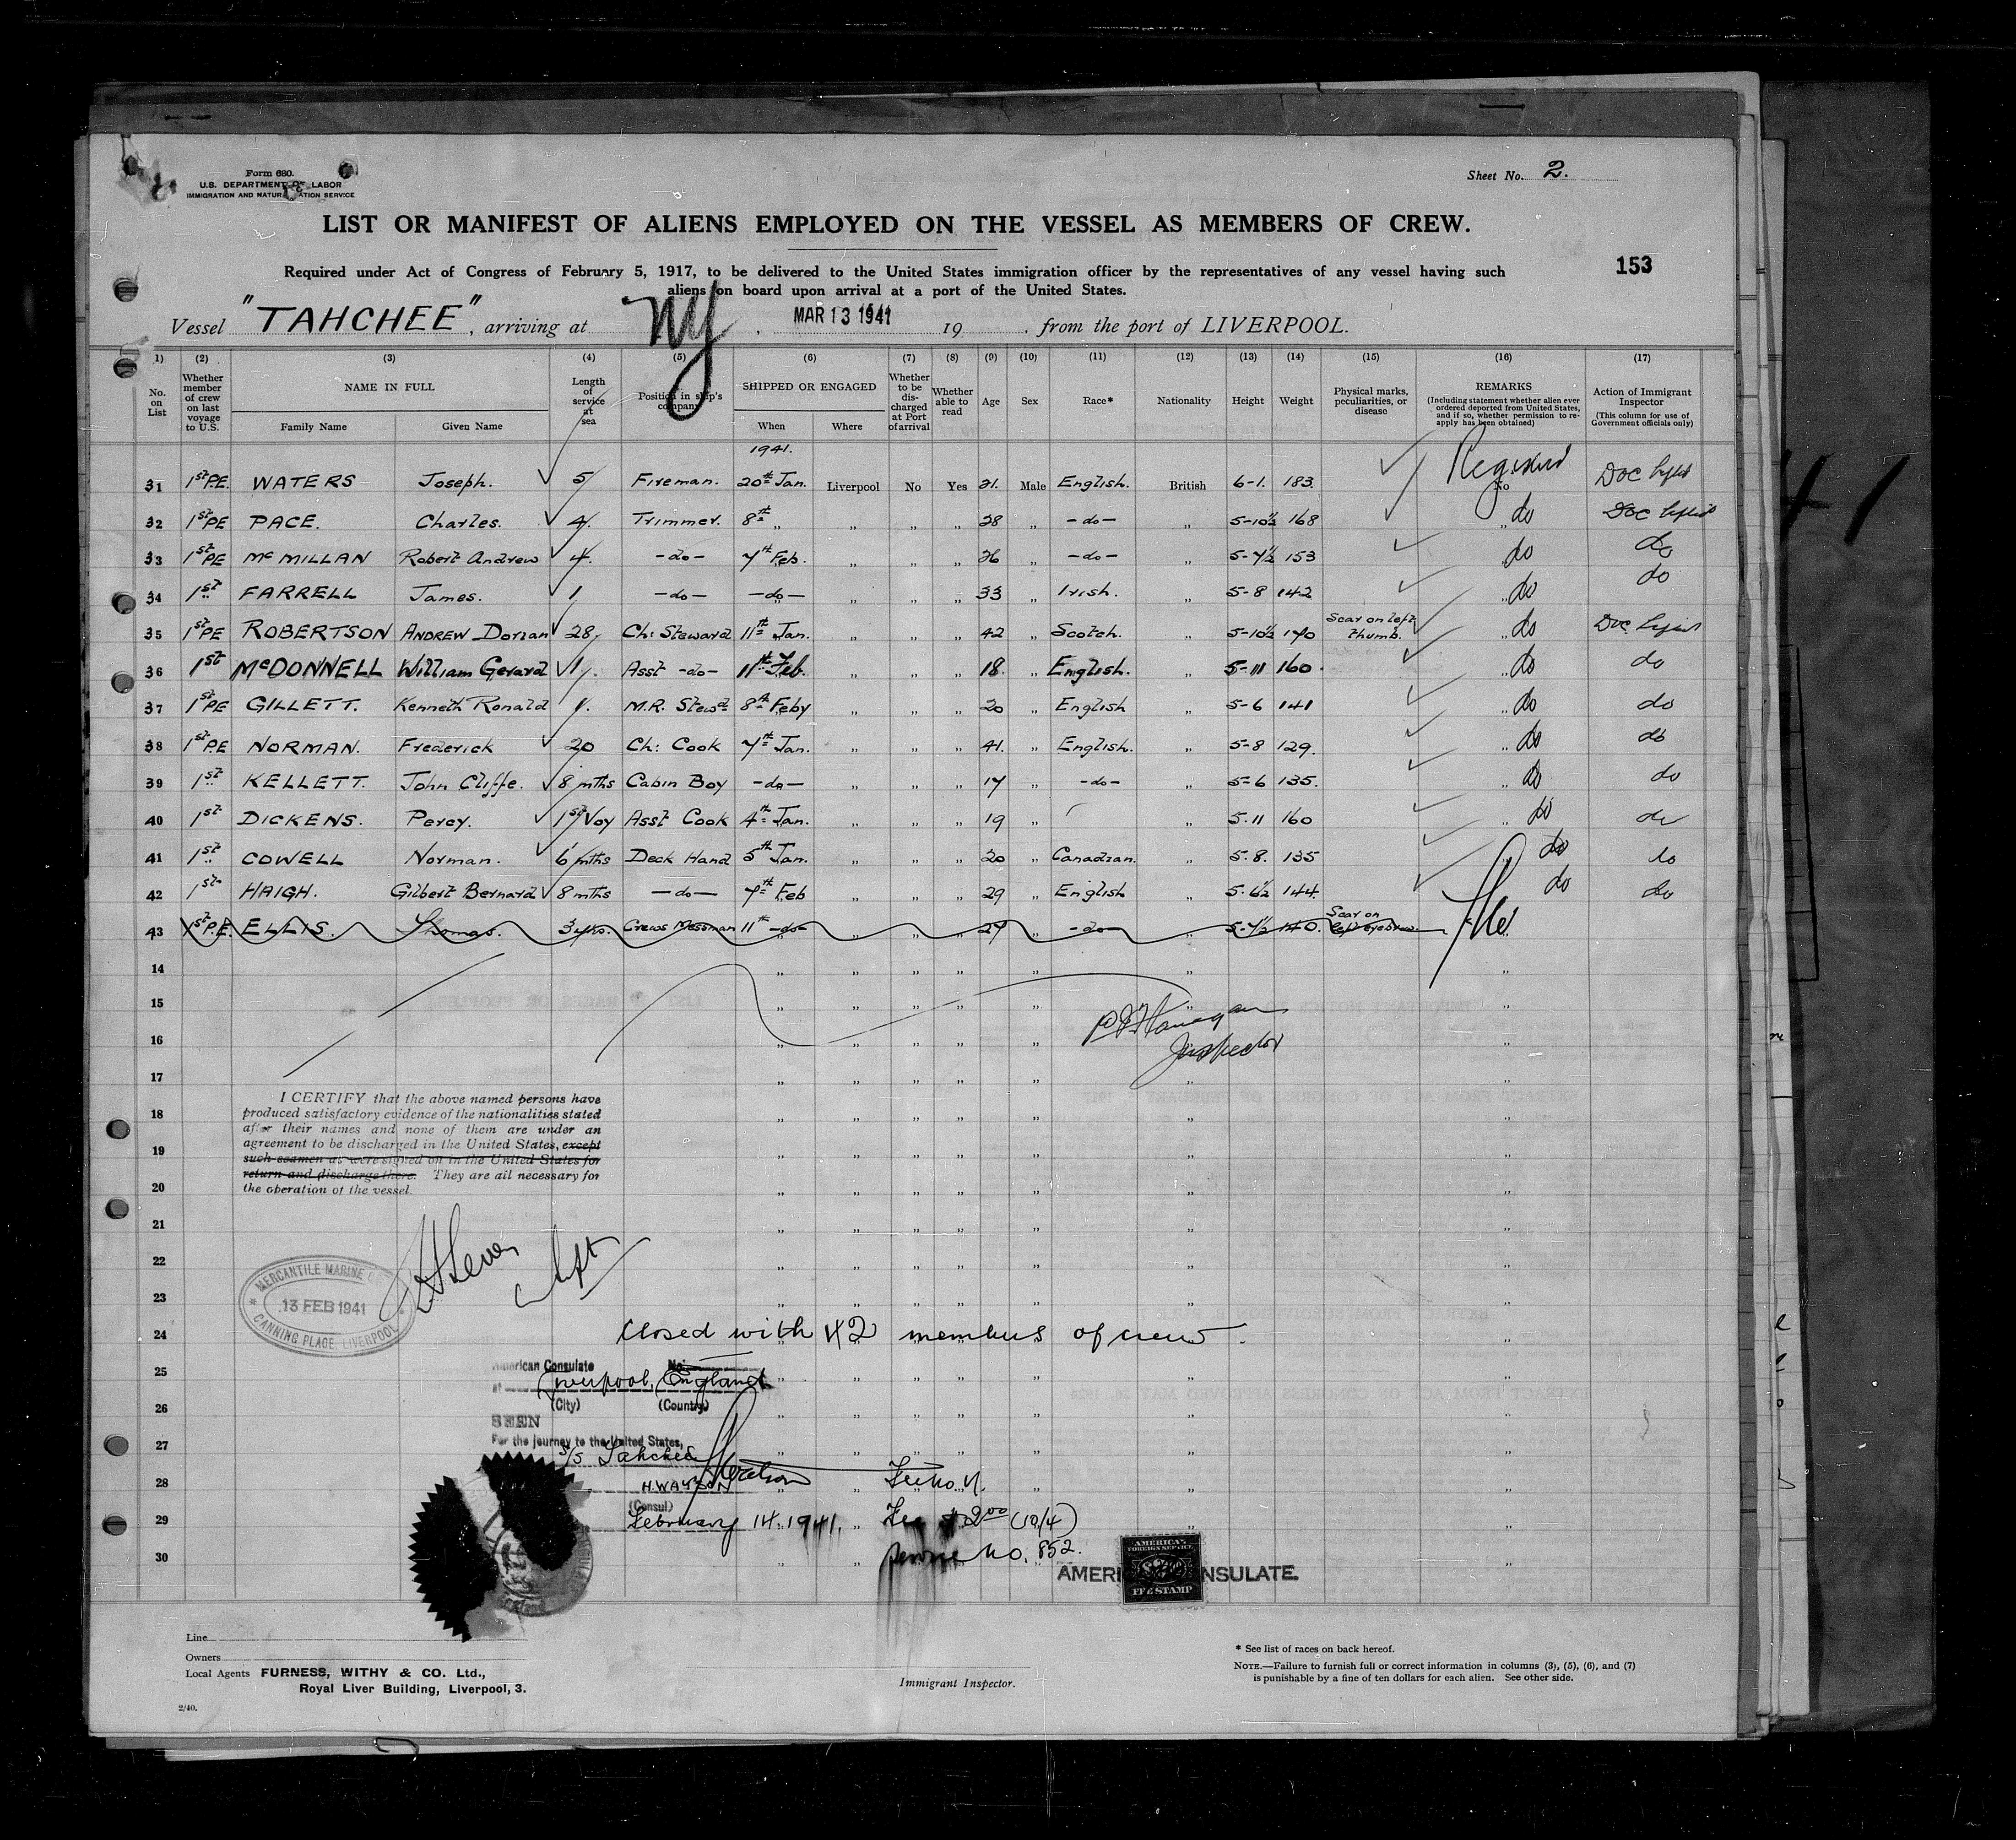 Form 680.
U.S. DEPARTMENT OF LABOR
IMMIGRATION AND NATURALIZATION SERVICE
Sheet No. 2.
LIST OR MANIFEST OF ALIENS EMPLOYED ON THE VESSEL AS MEMBERS OF CREW.
Required under Act of Congress of February 5, 1917, to be delivered to the United States immigration officer by the representatives of any vessel having such
aliens on board upon arrival at a port of the United States.
153
Vessel "TAHCHEE", arriving at NY, MAR 13 1941 19 , from the port of LIVERPOOL.
(1) (2) (3) (4) (5) (6) (7) (8) (9) (10) (11) (12) (13) (14) (15) (16) (17)
No. on List Whether member of crew on last voyage to U.S. NAME IN FULL Family Name Given Name Length of service at sea Position in ship's company SHIPPED OR ENGAGED When Where Whether to be discharged at Port of arrival Whether able to read Age Sex Race* Nationality Height Weight Physical marks, peculiarities, or disease REMARKS (Including statement whether alien ever ordered deported from United States, and if so, whether permission to re-apply has been obtained) Action of Immigrant Inspector (This column for use of Government officials only)
1941.
31 1st P.E. WATERS Joseph. 5 Fireman. 20th Jan. Liverpool No Yes 21. Male English. British 6-1. 183. No
32 1st PE PACE. Charles. 4. Trimmer. 8th „ „ „ „ 28 „ -do- „ 5-10½ 168 „ do
33 1st PE McMILLAN Robert Andrew 4. -do- 7th Feb. „ „ „ 26 „ -do- „ 5-7½ 153 „ do do
34 1st FARRELL James. 1 -do- -do- „ „ „ 33 „ Irish. „ 5-8 142 „ do do
35 1st PE ROBERTSON ANDREW Dorian 28 Ch: Steward 11th Jan. „ „ „ 42 „ Scotch. „ 5-10½ 170 Scar on left thumb. „ do
36 1st McDONNELL William Gerard 1 Asst -do- 11th Feb. „ „ „ 18. „ English. „ 5-11 160 „ do do
37 1st PE GILLETT. Kenneth Ronald 1. M.R. Stewd 8th Feby „ „ „ 20 „ English „ 5-6 141 „ do do
38 1st P.E NORMAN. Frederick 20 Ch: Cook 7th Jan. „ „ „ 41. „ English. „ 5-8 129. „ do do
39 1st KELLETT. John Cliffe. 8 mths Cabin Boy -do- „ „ „ 17 „ -do- „ 5-6 135. „ do do
40 1st DICKENS. Percy. 1st Voy Asst Cook 4th Jan. „ „ „ 19 „ „ 5.11 160 „ do do
41 1st COWELL Norman. 6 mths Deck Hand 5th Jan. „ „ „ 20 „ Canadian. „ 5-8. 135 „ do do
42 1st HAIGH. Gilbert Bernard 8 mths -do- 7th Feb „ „ „ 29 „ English „ 5-6½ 144. do do
43 1st P.E. ELLIS. Thomas. 3 yrs. Crews Messman 11th -do- „ „ „ 27 „ -do- „ 5-7½ 140. Scar on left eyebrow
14
15
16
Inspector
17
I CERTIFY that the above named persons have
18
produced satisfactory evidence of the nationalities stated
after their names and none of them are under an
agreement to be discharged in the United States, except
19
such seamen as were signed on in the United States for
return and discharge there. They are all necessary for
20
the operation of the vessel.
21
22
MERCANTILE MARINE
13 FEB 1941
CANNING PLACE, LIVERPOOL
23
24 Closed with 42 members of crew.
25 American Consulate No.
Liverpool, England
(City) (Country)
26 SEEN
27 For the journey to the United States,
S/S Tahchee
28 H. WATSON Fee No. 4.
(Consul)
29 February 14. 1941. Fee $2.00 (10/4)
30 Service No. 852.
AMERICAN CONSULATE.
AMERICAN
FOREIGN SERVICE
FEE STAMP
Line
Owners
Local Agents FURNESS, WITHY & CO. Ltd.,
Royal Liver Building, Liverpool, 3.
2/40.
Immigrant Inspector.
* See list of races on back hereof.
NOTE.—Failure to furnish full or correct information in columns (3), (5), (6), and (7)
is punishable by a fine of ten dollars for each alien. See other side.